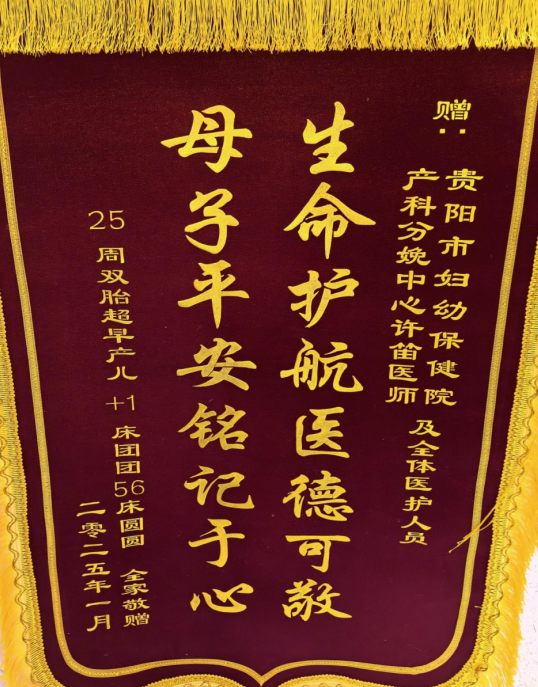 赠：
贵阳市妇幼保健院
产科分娩中心许笛医师及全体医护人员
生命护航医德可敬
母子平安铭记于心
25周双胎超早产儿+1床团团56床圆圆 全家敬赠
二零二五年一月